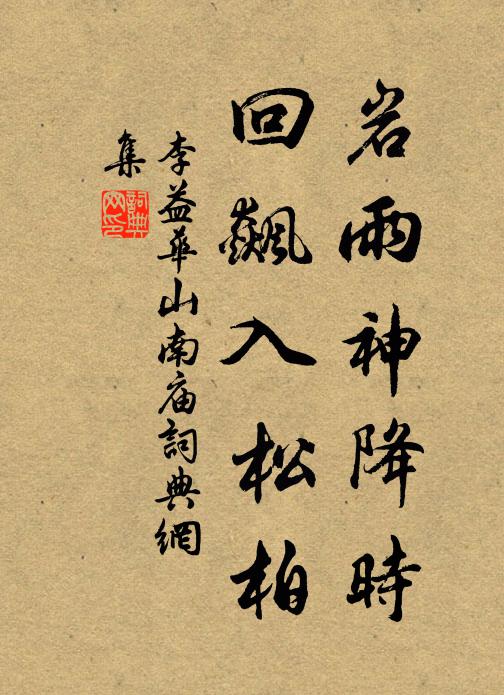 岩雨神降時
回飆入松柏
李益華山南庙詞典網
集
詞典
网印